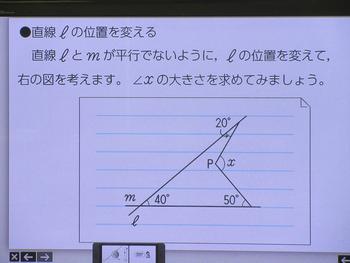 ●直線ℓの位置を変える
直線ℓとmが平行でないように，ℓの位置を変えて，
右の図を考えます。∠xの大きさを求めてみましょう。
20°
P x
m 40° 50°
ℓ